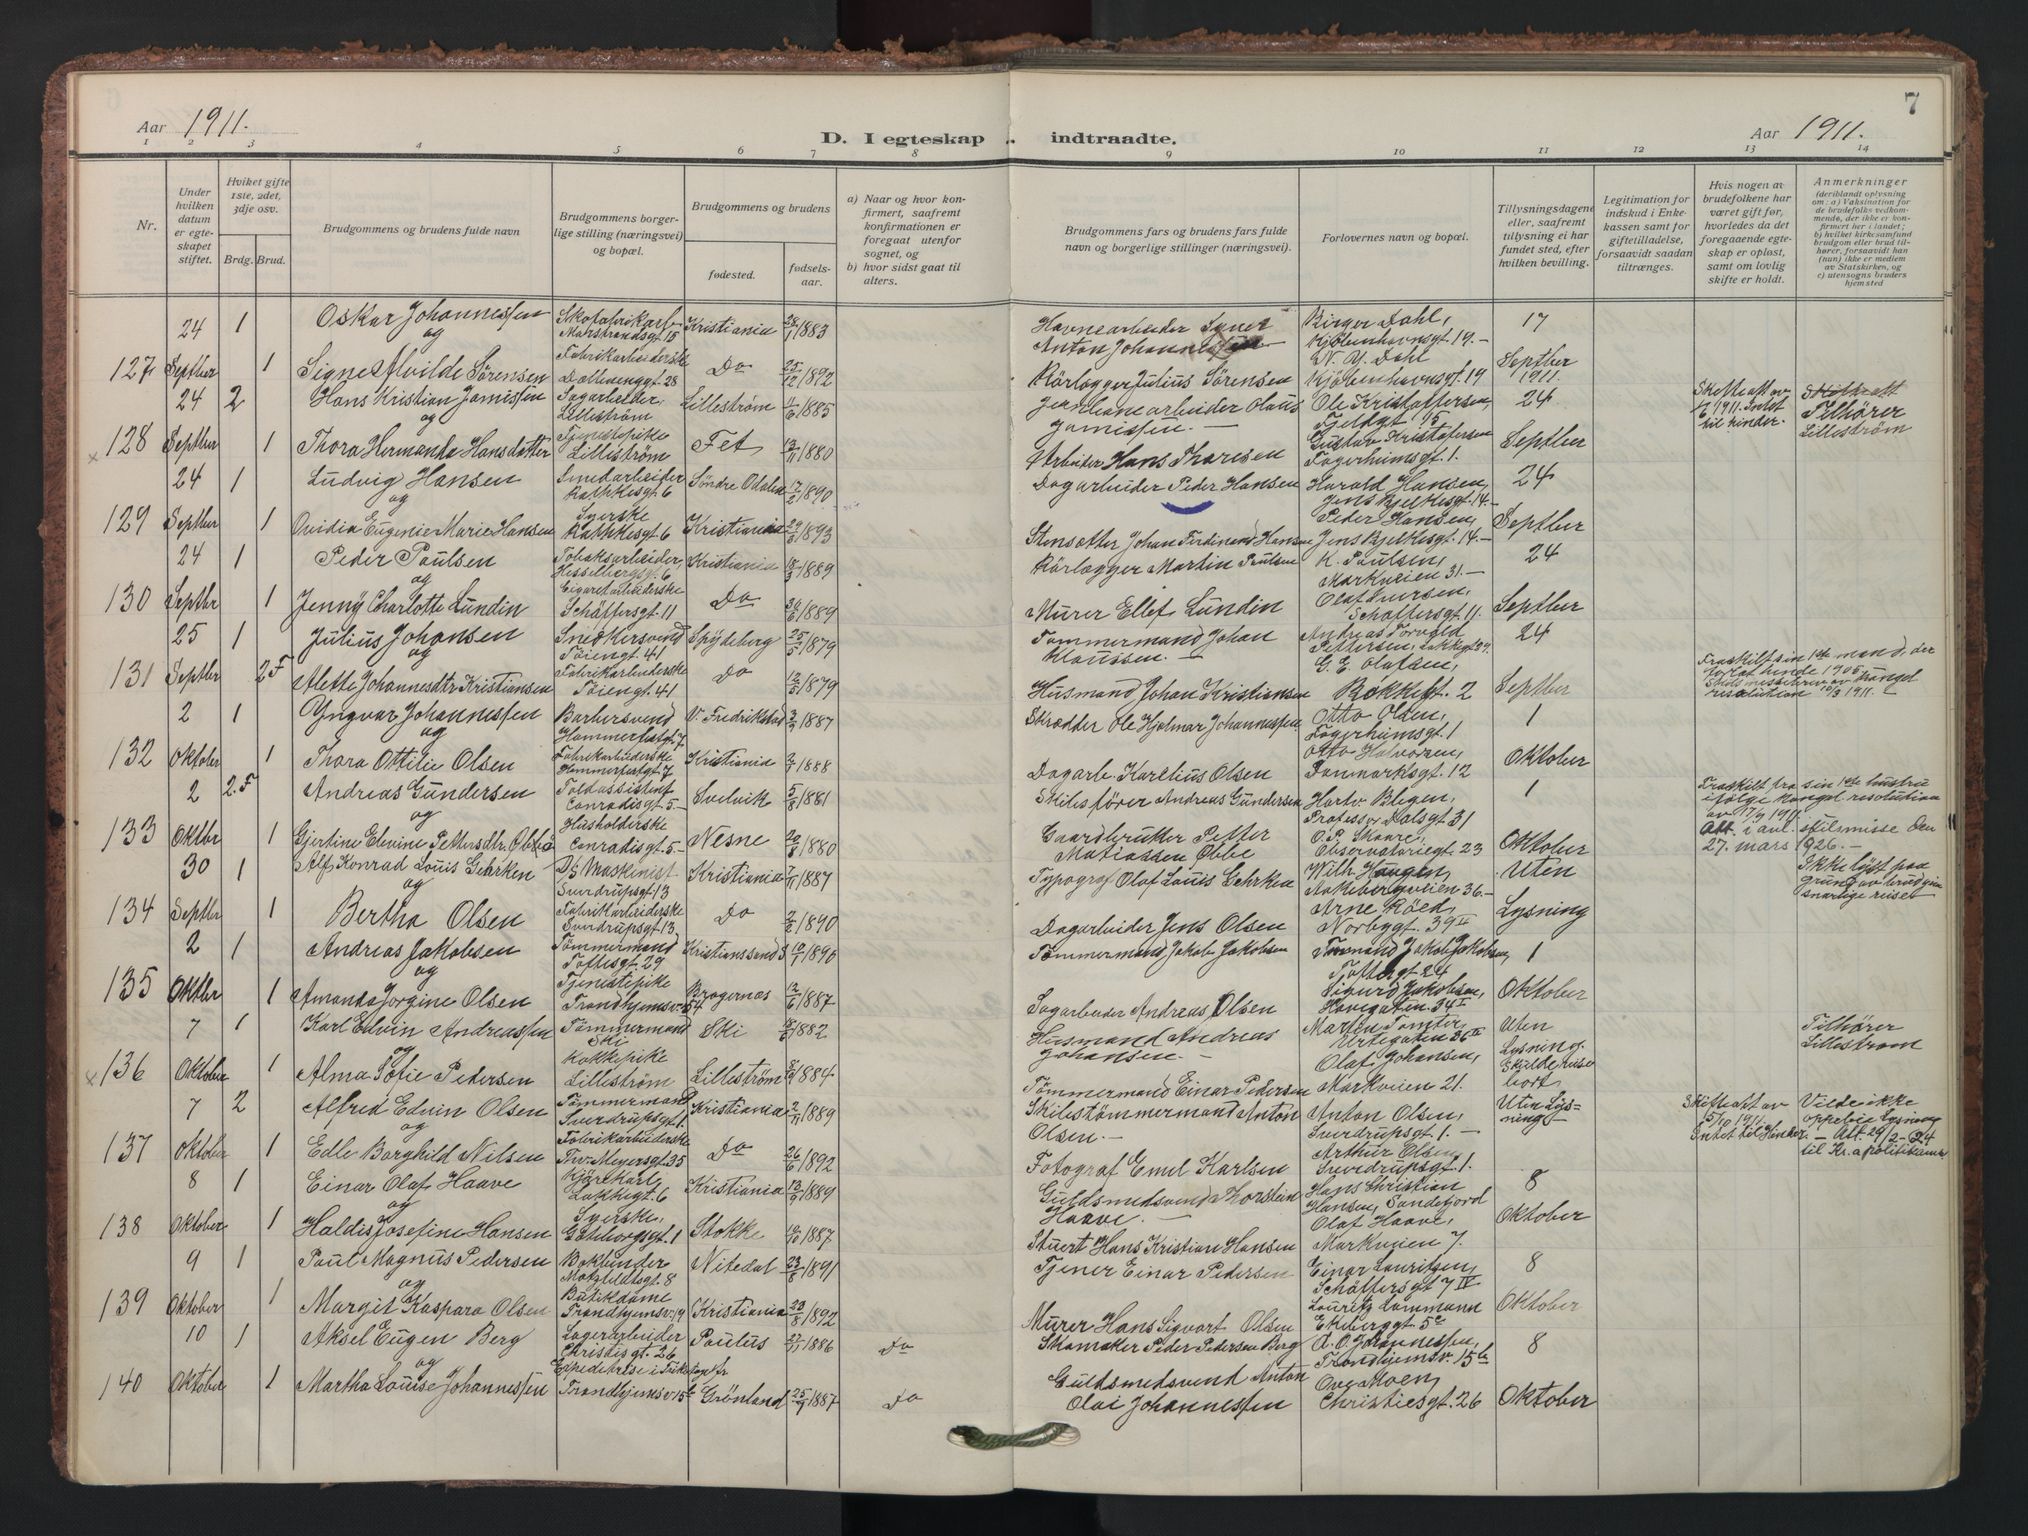 Aar 1911.
D. I egteskap indtraadte.
7
Aar 1911.
1 2 3 4 5 6 7 8 9 10 11 12 13 14
Nr.
Under hvilken datum er egteskapet stiftet.
Hviket gifte 1ste, 2det, 3dje osv.
Brdg. Brud.
Brudgommens og brudens fulde navn
Brudgommens borgerlige stilling (næringsvei) og bopæl.
Brudgommens og brudens
fødested.
fødselsaar.
a) Naar og hvor konfirmert, saafremt konfirmationen er foregaat utenfor sognet, og
b) hvor sidst gaat til alters.
Brudgommens fars og brudens fars fulde navn og borgerlige stillinger (næringsvei).
Forlovernes navn og bopæl.
Tillysningsdagene eller, saafremt tillysning ei har fundet sted, efter hvilken bevilling.
Legitimation for indskud i Enkekassen samt for giftetilladelse, forsaavidt saadan tiltrænges.
Hvis nogen av brudefolkene har været gift før, hvorledes da det foregaaende egteskap er opløst, samt om lovlig skifte er holdt.
Anmerkninger
(deriblandt oplysning om: a) Vaksination for de brudefolks vedkommende, der ikke er konfirmert her i landet; b) hvilket kirkesamfund brudgom eller brud tilhører, forsaavidt han (hun) ikke er medlem av Statskirken, og c) utensogns bruders hjemsted
127 24 Septbr 1 1
Oskar Johannessen
og
Signe Alvilde Sörensen
Marstrandsgt. 15
Fabrikarbeiderske
Dællenenggt. 28
Kristiania 28/1 1883
Do 25/12 1892
Havnearbeider
Anton Johannessen
Rörlægger Julius Sörensen
Birger Dahl,
Kjöbenhavnsgt. 19.-
Dahl
Kjöbenhavnsgt. 19
17
Septber
1911.
128 24 Septbr 2 1
Hans Kristian Jamissen
og
Thora Hermande Hansdatter
Sagarbeider,
Lilleström
Tjenestepike
Lilleström
Lilleström 11/6 1885
Fet 13/11 1880
Jernbanearbeider Olaus
Jamissen.-
Arbeider Hans Thoresen
Ole Kristoffersen,
Fjeldgt. 15
Gustav Kristofersen
Fagerheimsgt. 1.
24
Septber
Skifteatt av
1911. Intet
til hinder.
Tilhörer
Lilleström
129 24 Septbr 1 1
Ludvig Hansen
og
Ovidia Eugenie Marie Hansen
Smedarbeider
Rathkesgt. 6
Syerske
Rathkesgt. 6
Söndre Odalen 17/2 1890
Kristiania 1893
Dagarbeider Peder Hansen
Stensætter Johan Ferdinand Hansen
Harald Hansen,
Jens Bjelkesgt. 14-
Peder Hansen,
Jens Bjelkesgt. 14.-
24
Septber
130 24 Septbr 1 1
Peder Paulsen
og
Jenny Charlotte Lundin
Tobaksarbeider,
Hesselbergsgt. 6
Cigaretarbeiderske
Schäffersgt. 11
Kristiania 18/3 1889
Do 1889
Rörlægger Martin Paulsen
Murer Ellef Lundin
K. Paulsen,
Markveien 31.-
Olaf
Schäffersgt. 11.
24
Septber
131 25 Septbr 1 2 F
Julius Johansen
og
Alette Johannesdtr Kristiansen
Snedkersvend
Töiengt. 41
Fabrikarbeiderske
Töiengt. 41
Spydeberg 25/5 1879
Do 12/5 1879
Tömmermand Johan
Klaussen.-
Husmand Johan Kristiansen
Andreas Torvald
Pettersen,
G. E. Olafsen,
24
Septber
Fraskilt sin 1ste mand, der
forlot hende 1905
resolution 10/3 1911.
132 2 Oktober 1 1
Yngvar Johannessen
og
Thora Ottilie Olsen
Barbersvend
Hammerfestgt. 7
Fabrikarbeiderske
Hammerfestgt. 7
V. Fredrikstad 1887
Kristiania 2/7 1888
Skrædder Ole Hjalmar Johannessen
Dagarb. Karelius Olsen
Otto Olsen,
Fagerheimsgt. 1
Otto Halvorsen,
Danmarksgt. 12
1
Oktober
133 2 Oktbr 2.F 1
Andreas Gundersen
og
Gjertine Edvine Pettersdtr. Obbe
Toldassistent
Conradisgt. 5-
Husholderske
Conradisgt. 5-
Svelvik 5/8 1881
Nesne 20/8 1880
Skibsförer Andreas Gundersen
Gaardbruker Petter
Matiassen Obbe
Hartv. Blegen,
Professor Dalsgt. 31
O. P. Skaare,
Observatoriegt. 23
1
Oktober
Fraskilt fra sin 1ste hustru
ifölge kongel resolution
av 17/9 1911.
27. mars 1926.-
134 30 Septbr 1 1
Alf Konrad Louis Gehrken
og
Bertha Olsen
D/S Maskinist
Sverdrupsgt. 13
Fabrikarbeiderske
Sverdrupsgt. 13.
Kristiania 7/11 1887
Do 1890
Typograf Olaf Louis Gehrken
Dagarbeider Jens Olsen
Wilh. Haugen,
Aakebergveien 36.-
Arne Röed,
Norbygt. 39 II
Uten
Lysning
Ikke lyst paa
grund av brudgom
snarlige reise
135 2 Oktbr 1 1
Andreas Jakobsen
og
Amanda Jorgine Olsen
Tömmermand
Toftesgt. 29
Tjenestepike
Trondhjemsv. 54
Kristianssand S 10/7 1890
Bragernæs 12/6 1887
Tömmermand Jakob Jakobsen
Sagarbeider Andreas Olsen
Jakob Jakobsen,
Toftesgt 24
Sigurd Jakobsen,
Havegaten 34 I
1
Oktober
136 7 Oktober 1 1
Karl Edvin Andreassen
og
Alma Sofie Pedersen
Tömmermand
Ski
Kokkepike
Lilleström
Ski 1882
Lilleström 1884
Husmand Andreas
Johansen.-
Tömmermand Einar Pedersen
Marten Tomter,
Urtegaten 36 II
Olaf Johansen,
Markveien 21.
Uten
Lysning.
Skulde reise
bort
Tilhörer
Lilleström
137 7 Oktober 2 1
Alfred Edvin Olsen
og
Edle Borghild Nilsen
Tömmermand
Sverdrupsgt. 1.
Fabrikarbeiderske
Thv. Meyersgt. 35
Kristiania 2/11 1889
Do 26/6 1892
Skibstömmermand Anton
Olsen.-
Fotograf Emil Karlsen
Anton Olsen,
Sverdrupsgt. 1.-
Arthur Olsen,
Sverdrupsgt. 1.
Uten Lysning
Skifteatt av
5/10 1911.
Intet til Hinder
Vilde ikke
oppebie Lysning
- Att. 29/2-24
til Kr.a politikamr
138 8 Oktober 1 1
Einar Olaf Haave
og
Haldis Josefine Hansen
Kjörekarl,
Lakkegt. 6
Syerske,
Göteborgsgt. 1
Kristiania 13/9 1889
Stokke 1887
Guldsmedsvend Thorstein
Haave.-
Stuert Hans Kristian Hansen
Hans Christian
Hansen, Sandefjord
Olaf Haave,
Markveien 7.
8
Oktober
139 9 Oktober 1 1
Paul Magnus Pedersen
og
Margit Kaspara Olsen
Bokbinder
Motzfeldtsgt. 8
Butikdame
Trondhjemsv. 19
Nitedal 23/8 1891
Kristiania 23/8 1892
Tjener Einar Pedersen
Murer Hans Sigvart Olsen
Einar Lauritzen,
Schäffersgt 7 IV
Lauritz Lammann
Ekeberggt. 5c
8
Oktober
140 10 Oktober 1 1
Aksel Eugen Berg
og
Martha Louise Johannessen
Lagerarbeider
Christiesgt. 26
Trondhjemsv. 15b
Paulus 27/11 1886 Do
Grönland 25/9 1887 Do
Skomaker Peder Pedersen Berg
Guldsmedsvend Anton
Olai Johannessen
A. O. Johannessen,
Trondhjemsv. 15b
Ove Moen,
Christiesgt. 26
8
Oktober